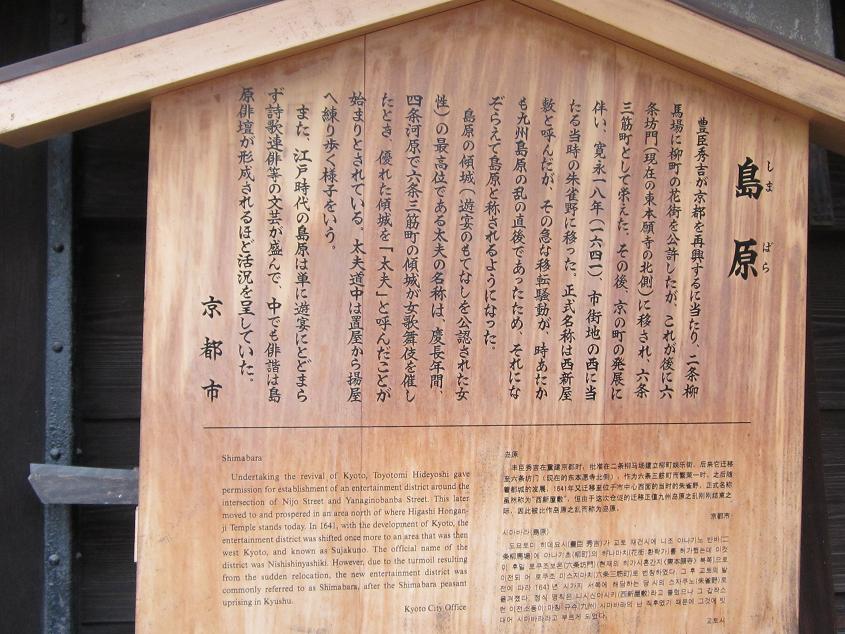 島原
しま ばら
豊臣秀吉が京都を再興するに当たり、二条柳
馬場に柳町の花街を公許したが、これが後に六
条坊門(現在の東本願寺の北側)に移され、六条
三筋町として栄えた。その後、京の町の発展に
伴い、寛永一八年(一六四一)、市街地の西に当
たる当時の朱雀野に移った。正式名称は西新屋
敷と呼んだが、その急な移転騒動が、時あたか
も九州島原の乱の直後であったため、それにな
ぞらえて島原と称されるようになった。
島原の傾城(遊宴のもてなしを公認された女
性)の最高位である太夫の名称は、慶長年間、
四条河原で六条三筋町の傾城が女歌舞伎を催し
たとき、優れた傾城を「太夫」と呼んだことが
始まりとされている。太夫道中は置屋から揚屋
へ練り歩く様子をいう。
また、江戸時代の島原は単に遊宴にとどまら
ず詩歌連俳等の文芸が盛んで、中でも俳諧は島
原俳壇が形成されるほど活況を呈していた。
京都市
Shimabara
Undertaking the revival of Kyoto, Toyotomi Hideyoshi gave
permission for establishment of an entertainment district around the
intersection of Nijo Street and Yanaginobanba Street. This later
moved to and prospered in an area north of where Higashi Hongan-
ji Temple stands today. In 1641, with the development of Kyoto, the
entertainment district was shifted once more to an area that was then
west Kyoto, and known as Sujakuno. The official name of the
district was Nishishinyashiki. However, due to the turmoil resulting
from the sudden relocation, the new entertainment district was
commonly referred to as Shimabara, after the Shimabara peasant
uprising in Kyushu.
Kyoto City Office
岛原
丰臣秀吉在重建京都时,批准在二条柳马场建立柳町娱乐街。后来它迁移
至六条坊门(现在的东本愿寺北侧),作为六条三筋町而繁荣一时。之后随
着都城的发展,1641年又迁移至位于市中心西面的当时的朱雀野。正式名称
虽然称为"西新屋敷",但由于这次仓促的迁移正值九州岛原之乱刚刚结束之
际,因此被比作岛原之乱而称为岛原。
京都市
시마바라(島原)
도요토미 히데요시(豊臣 秀吉)가 교토 재건시에 니조 야나기노 반바(二
条柳馬場)에 야나기초(柳町)의 하나마치(花街 환락가)를 허가했는데 이것
이 후일 로쿠조보몬(六条坊門)(현재의 히가시혼간지(東本願寺) 북쪽)으로
이전되어 로쿠조 미스지마치(六条三筋町)로 번창하였다. 그 후 교토의 발
전에 따라 1641년 시가지 서쪽에 해당하는 당시의 스자쿠노(朱雀野)로
옮겨졌다. 정식 명칭은 니시신야시키(西新屋敷)라고 불렀으나 그 갑작스
런 이전소동이 마침 규슈(九州) 시마바라의 난 직후였기 때문에 그것에 빗
대어 시마바라라고 부르게 되었다.
교토시